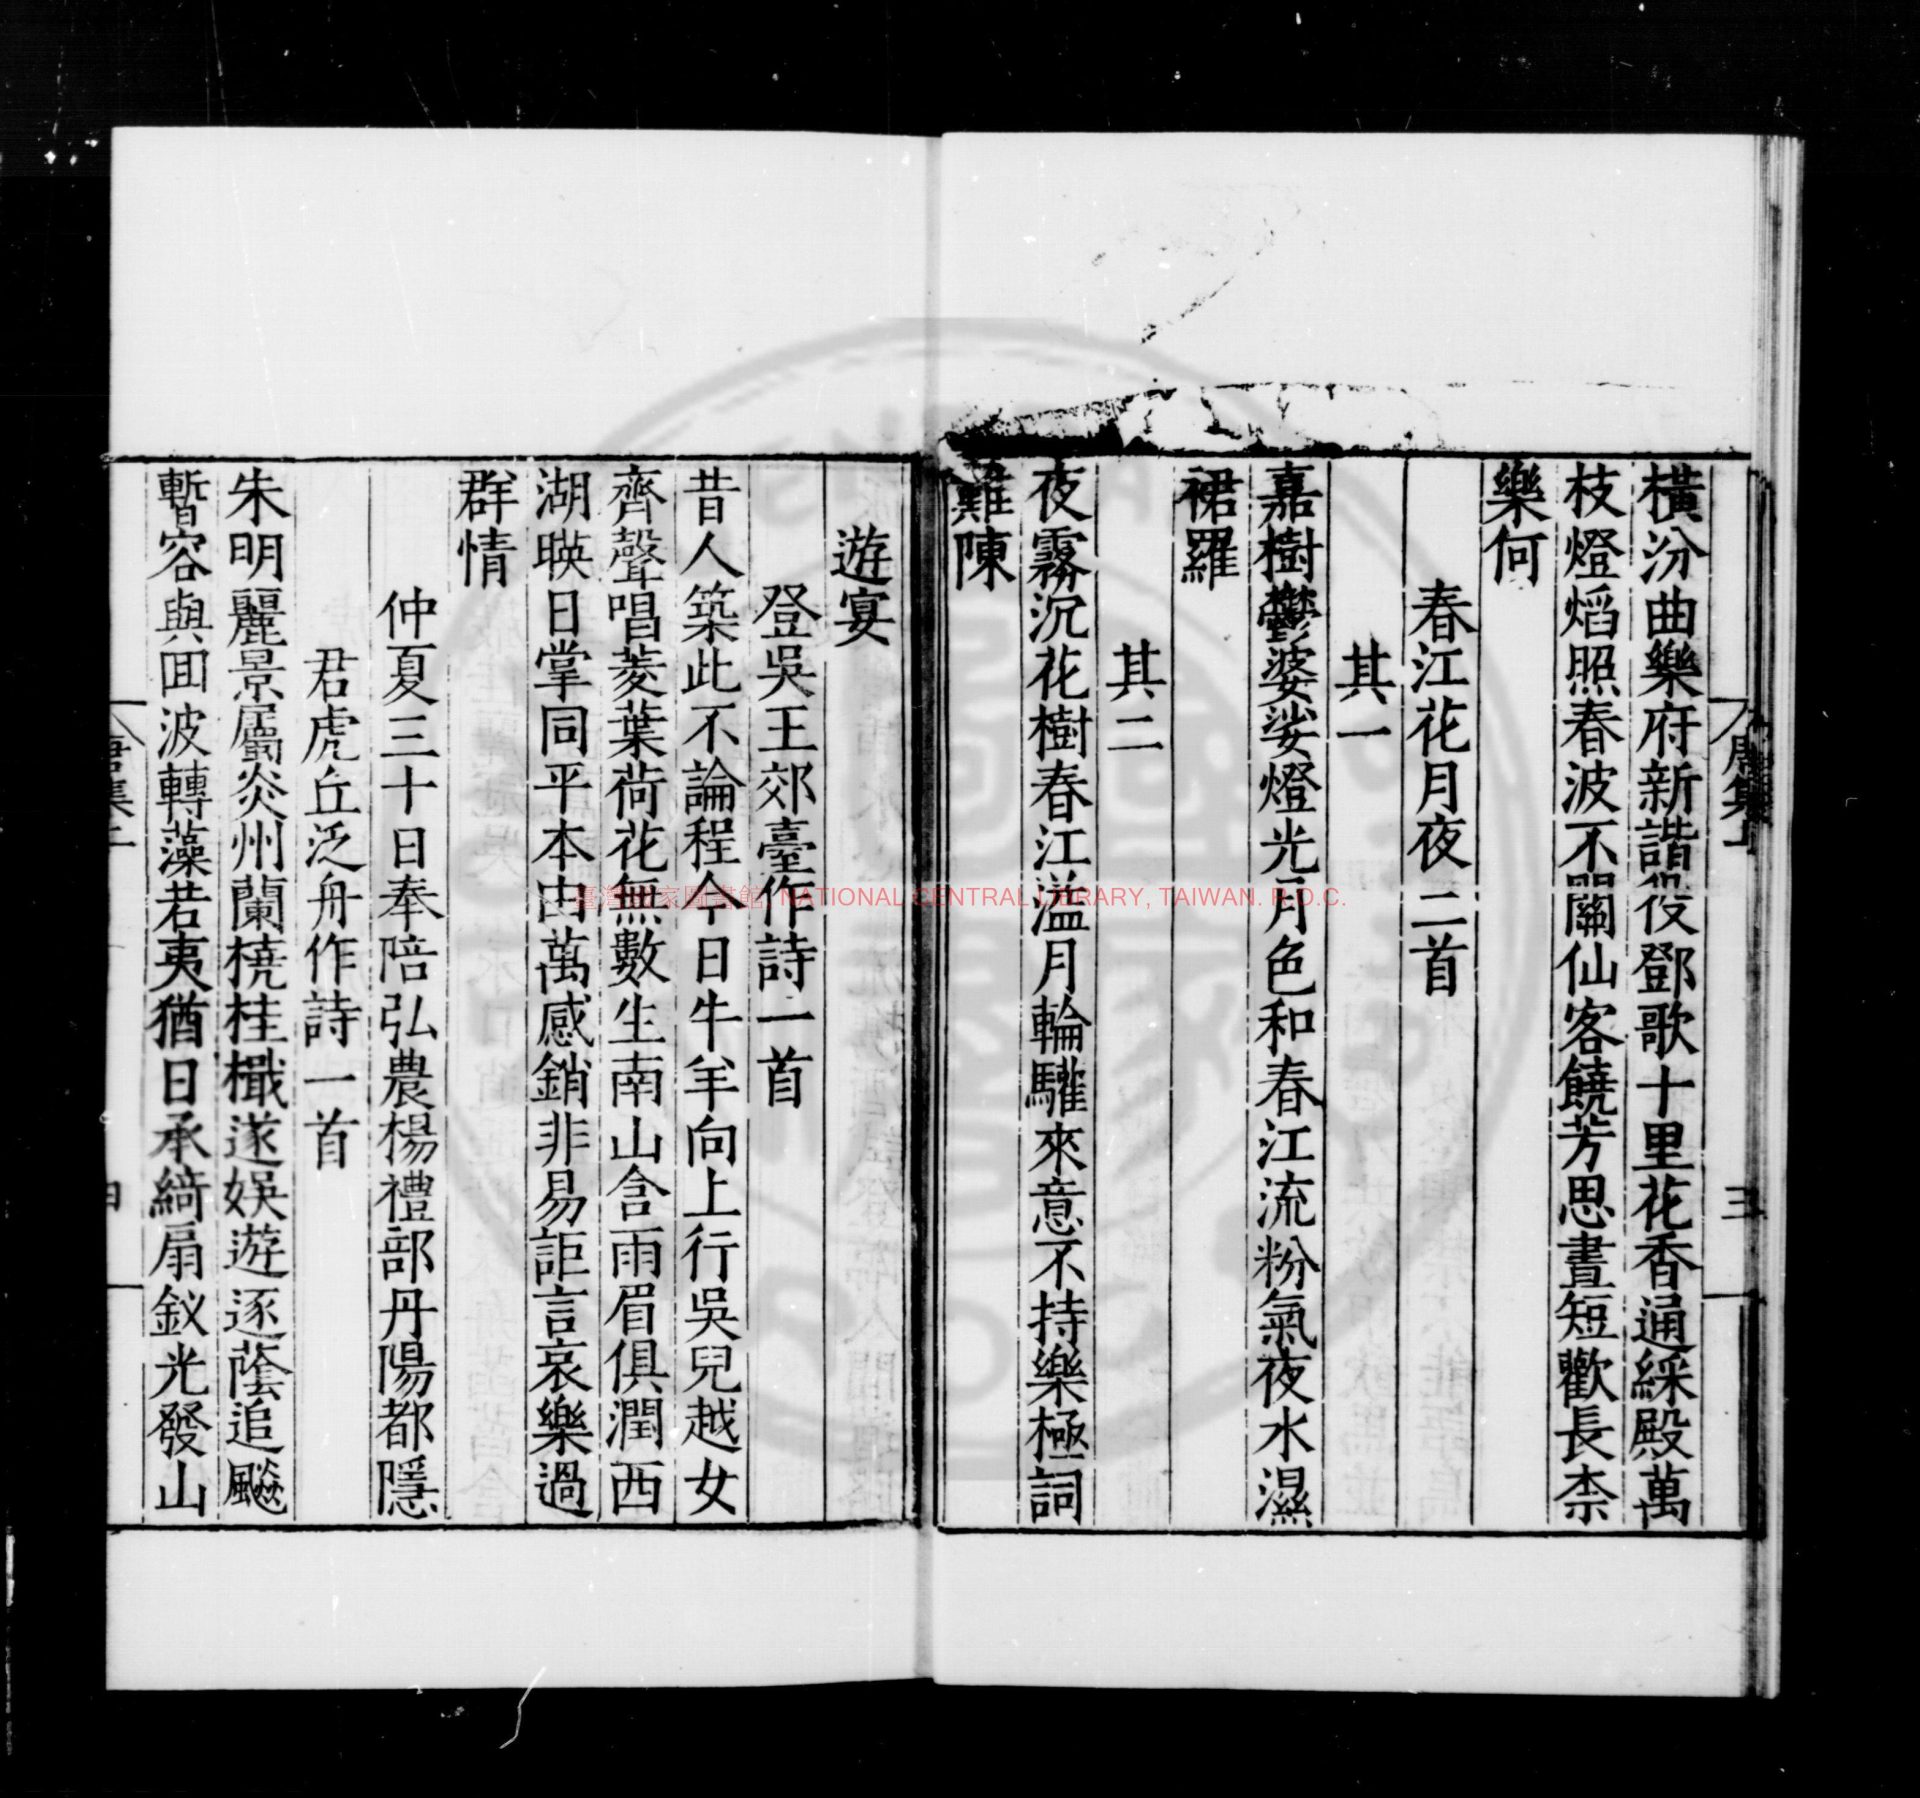 橫汾曲樂府新諧役鄧歌十里花香通綵殿萬
枝燈焰照春波不關仙客饒芳思晝短歡長柰
樂何
春江花月夜二首
其一
嘉樹鬱婆娑燈光月色和春江流粉氣夜水濕
裙羅
其二
夜霧沉花樹春江溢月輪驩來意不持樂極詞
難陳
遊宴
登吳王郊臺作詩一首
昔人築此不論程今日牛羊向上行吳兒越女
齊聲唱菱葉荷花無數生南山含雨眉俱潤西
湖暎日掌同平本由萬感銷非易詎言哀樂過
群情
仲夏三十日奉陪弘農楊禮部丹陽都隱
君虎丘泛舟作詩一首
朱明麗景屬炎州蘭橈桂檝遂娛遊逐蔭追飈
暫容與回波轉藻若夷猶日承綺扇釵光發山
三
臺灣國家圖書館, NATIONAL CENTRAL LIBRARY, TAIWAN. R.O.C.